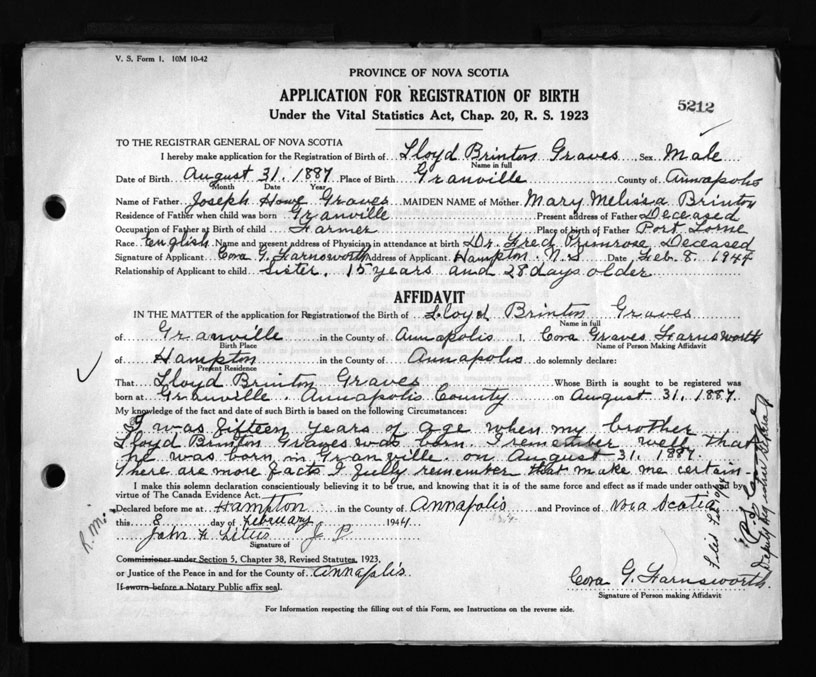 V. S. Form 1. 10M 10-42
PROVINCE OF NOVA SCOTIA
APPLICATION FOR REGISTRATION OF BIRTH
5212
Under the Vital Statistics Act, Chap. 20, R. S. 1923
TO THE REGISTRAR GENERAL OF NOVA SCOTIA
I hereby make application for the Registration of Birth of Lloyd Brinton Graves, Sex Male
Name in full
Date of Birth August 31. 1887 Place of Birth Granville County of Annapolis
Month Date Year
Name of Father Joseph Howe Graves MAIDEN NAME of Mother Mary Melissa Brinton
Residence of Father when child was born Granville Present address of Father Deceased
Occupation of Father at Birth of child Farmer Place of birth of Father Port Lorne
Race English Name and present address of Physician in attendance at birth Dr. Fred Primrose, Deceased
Signature of Applicant Cora G. Farnsworth Address of Applicant Hampton. N.S Date Feb. 8. 1944
Relationship of Applicant to child Sister. 15 years and 28 days older.
AFFIDAVIT
IN THE MATTER of the application for Registration of the Birth of Lloyd Brinton Graves
Name in full
of Granville in the County of Annapolis I, Cora Graves Farnsworth
Birth Place Name of Person Making Affidavit
of Hampton in the County of Annapolis do solemnly declare:
Present Residence
That Lloyd Brinton Graves Whose Birth is sought to be registered was
born at Granville. Annapolis County on August 31. 1887.
My knowledge of the fact and date of such Birth is based on the following Circumstances:
I was fifteen years of age when my brother
Lloyd Brinton Graves was born. I remember well that
he was born in Granville on August 31. 1887.
There are more facts I fully remember that make me certain.
I make this solemn declaration conscientiously believing it to be true, and knowing that it is of the same force and effect as if made under oath by
virtue of The Canada Evidence Act.
Declared before me at Hampton in the County of Annapolis and Province of Nova Scotia
this 8 day of February 1944
John J. P.
Signature of
Commissioner under Section 5, Chapter 38, Revised Statutes, 1923,
or Justice of the Peace in and for the County of Annapolis.
If sworn before a Notary Public affix seal.
Cora G. Farnsworth.
Signature of Person making Affidavit
For Information respecting the filling out of this Form, see Instructions on the reverse side.
R. M.
Deputy Registrar General